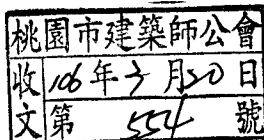 桃園市建築師公會
收106年3月20日
文第554號